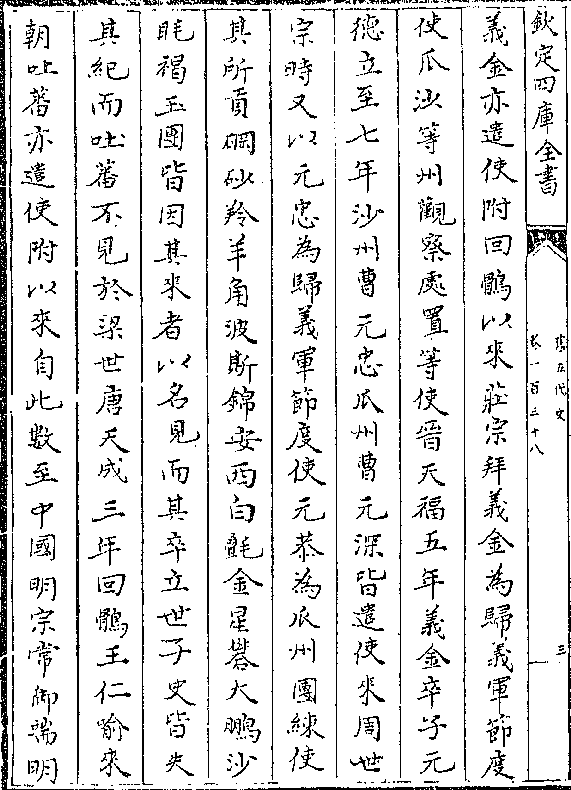 欽定四庫全書
舊五代史
卷一百三十八
三
義金亦遣使附回鶻以來莊宗拜義金為歸義軍節度
使瓜沙等州觀察處置等使晉天福五年義金卒子元
德立至七年沙州曹元忠瓜州曹元深皆遣使來周世
宗時又以元忠為歸義軍節度使元恭為瓜州團練使
其所貢硇砂羚羊角波斯錦安西白氎金星礬大鵬沙
毦褐玉團皆因其來者以名見而其卒立世子史皆失
其紀而吐蕃不見於梁世唐天成三年回鶻王仁喻來
朝吐蕃亦遣使附以來自此數至中國明宗常御端明